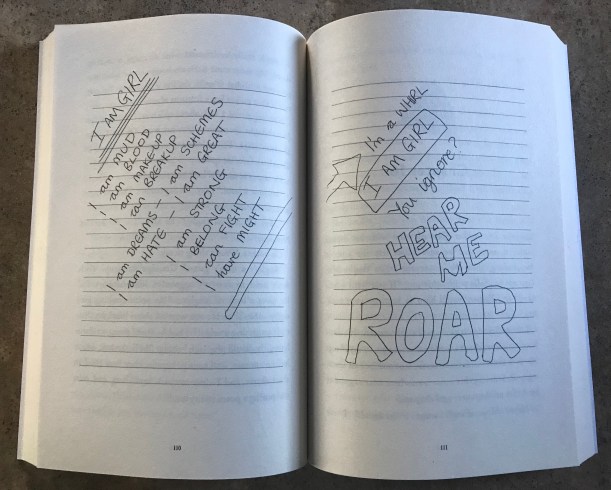 I AM GIRL
I am MUD
I am BLOOD
I am MAKEUP
I can BREAKUP
I am DREAMS - I am SCHEMES
I am HATE - I am GREAT
I am STRONG
I BELONG
I can FIGHT
I have MIGHT
110
I'm a WHIRL
I AM GIRL
You ignore?
HEAR
ME
ROAR
111